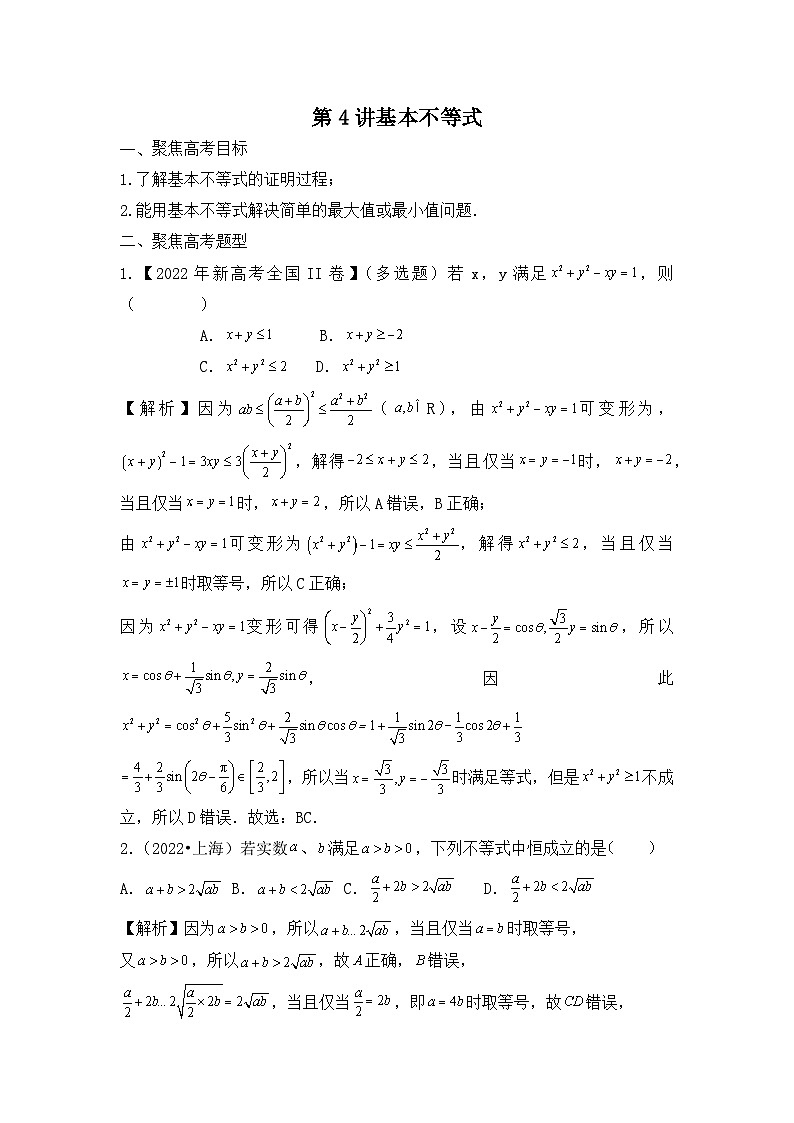 第 4 讲基本不等式
一、聚焦高考目标
1.了解基本不等式的证明过程；
2.能用基本不等式解决简单的最大值或最小值问题.
二、聚焦高考题型
1.【2022 年新高考全国 II 卷】（多选题）若 x，y 满足 $x^2+y^2-xy=1$，则
（　　）
A. $x+y\le 1$ B. $x+y\ge -2$
C. $x^2+y^2\le 2$ D. $x^2+y^2\ge 1$
【解析】因为 $ab\le\left(\frac{a+b}{2}\right)^2\le\frac{a^2+b^2}{2}$（$a,b$Î R），由 $x^2+y^2-xy=1$可变形为，
$(x+y)^2-1=3xy\le 3\left(\frac{x+y}{2}\right)^2$，解得$-2\le x+y\le 2$，当且仅当$x=y=-1$时，$x+y=-2$，
当且仅当$x=y=1$时，$x+y=2$，所以 A错误，B正确；
由 $x^2+y^2-xy=1$可变形为 $(x^2+y^2)-1=xy\le\frac{x^2+y^2}{2}$，解得 $x^2+y^2\le 2$，当且仅当
$x=y=\pm 1$时取等号，所以 C 正确；
因为 $x^2+y^2-xy=1$变形可得 $\left(x-\frac{y}{2}\right)^2+\frac{3}{4}y^2=1$，设 $x-\frac{y}{2}=\cos\theta,\frac{\sqrt{3}}{2}y=\sin\theta$，所以
$x=\cos\theta+\frac{1}{\sqrt{3}}\sin\theta,y=\frac{2}{\sqrt{3}}\sin\theta$，因此
$x^2+y^2=\cos^2\theta+\frac{5}{3}\sin^2\theta+\frac{2}{\sqrt{3}}\sin\theta\cos\theta=1+\frac{1}{\sqrt{3}}\sin2\theta-\frac{1}{3}\cos2\theta+\frac{1}{3}$
$=\frac{4}{3}+\frac{2}{3}\sin\left(2\theta-\frac{\pi}{6}\right)\in\left[\frac{2}{3},2\right]$，所以当$x=\frac{\sqrt{3}}{3},y=-\frac{\sqrt{3}}{3}$时满足等式，但是$x^2+y^2\ge 1$不成
立，所以 D 错误．故选：BC．
2.（2022•上海）若实数$a$、$b$满足$a>b>0$，下列不等式中恒成立的是(　　)
A. $a+b>2\sqrt{ab}$ B. $a+b<2\sqrt{ab}$ C. $\frac{a}{2}+2b>2\sqrt{ab}$ D. $\frac{a}{2}+2b<2\sqrt{ab}$
【解析】因为$a>b>0$，所以$a+b…2\sqrt{ab}$，当且仅当$a=b$时取等号，
又$a>b>0$，所以$a+b>2\sqrt{ab}$，故$A$正确，$B$错误，
$\frac{a}{2}+2b…2\sqrt{\frac{a}{2}\times 2b}=2\sqrt{ab}$，当且仅当$\frac{a}{2}=2b$，即$a=4b$时取等号，故$CD$错误，